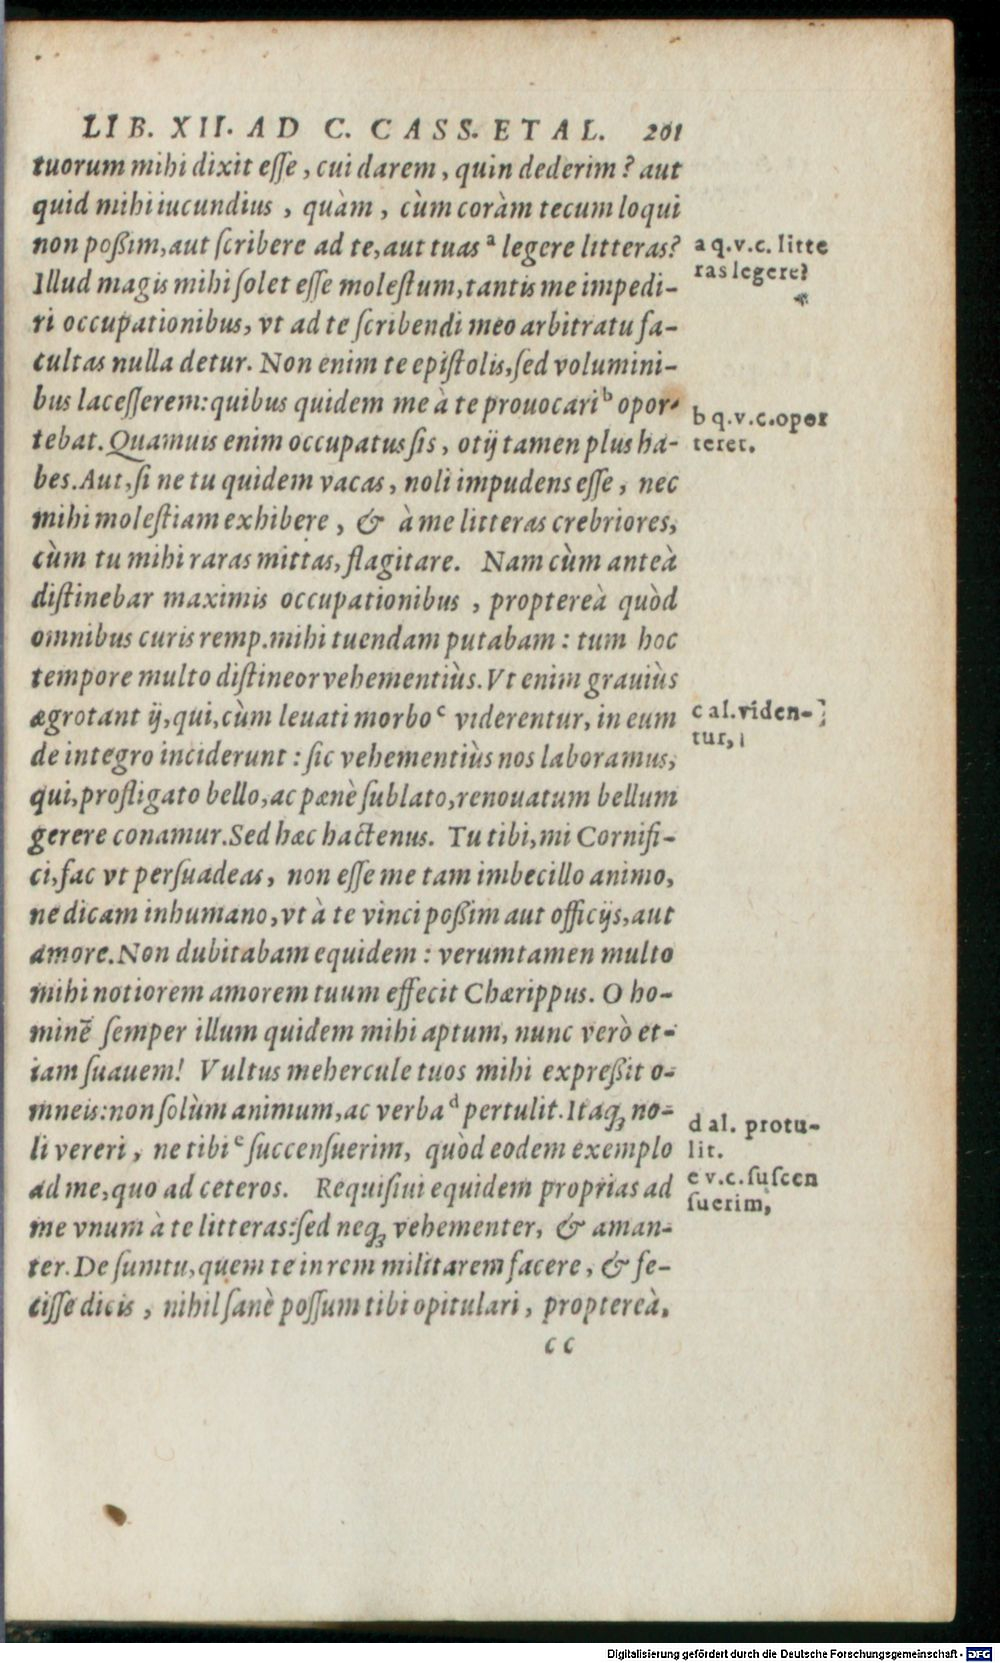 LIB. XII. AD C. CASS. ET AL. 201
tuorum mihi dixit eſſe, cui darem, quin dederim? aut
quid mihi iucundius, quàm, cùm coràm tecum loqui
non poßim, aut ſcribere ad te, aut tuas ᵃ legere litteras?
Illud magis mihi ſolet eſſe moleſtum, tantis me impedi-
ri occupationibus, vt ad te ſcribendi meo arbitratu fa-
cultas nulla detur. Non enim te epiſtolis, ſed volumini-
bus laceſſerem: quibus quidem me à te prouocari ᵇ opor-
tebat. Quamuis enim occupatus ſis, otij tamen plus ha-
bes. Aut, ſi ne tu quidem vacas, noli impudens eſſe, nec
mihi moleſtiam exhibere, & à me litteras crebriores,
cùm tu mihi raras mittas, flagitare. Nam cùm anteà
diſtinebar maximis occupationibus, proptereà quòd
omnibus curis remp. mihi tuendam putabam: tum hoc
tempore multo diſtineor vehementiùs. Vt enim grauiùs
ægrotant ij, qui, cùm leuati morbo ᶜ viderentur, in eum
de integro inciderunt: ſic vehementiùs nos laboramus,
qui, profligato bello, ac pænè ſublato, renouatum bellum
gerere conamur. Sed hæc hactenus. Tu tibi, mi Cornifi-
ci, fac vt perſuadeas, non eſſe me tam imbecillo animo,
ne dicam inhumano, vt à te vinci poßim aut officijs, aut
amore. Non dubitabam equidem: verumtamen multo
mihi notiorem amorem tuum effecit Chærippus. O ho-
minē ſemper illum quidem mihi aptum, nunc verò et-
iam ſuauem! Vultus mehercule tuos mihi expreßit o-
mneis: non ſolùm animum, ac verba ᵈ pertulit. Itaqꝫ no-
li vereri, ne tibi ᵉ ſuccenſuerim, quòd eodem exemplo
ad me, quo ad ceteros. Requiſiui equidem proprias ad
me vnum à te litteras: ſed neqꝫ vehementer, & aman-
ter. De ſumtu, quem te in rem militarem facere, & fe-
ciſſe dicis, nihil ſanè poſſum tibi opitulari, proptereà,
cc
a q.v.c. litte
ras legere?
b q.v.c. opor
teret.
c al. viden-
tur,
d al. protu-
lit.
e v.c. ſuſcen
ſuerim,
Digitalisierung gefördert durch die Deutsche Forschungsgemeinschaft - DFG